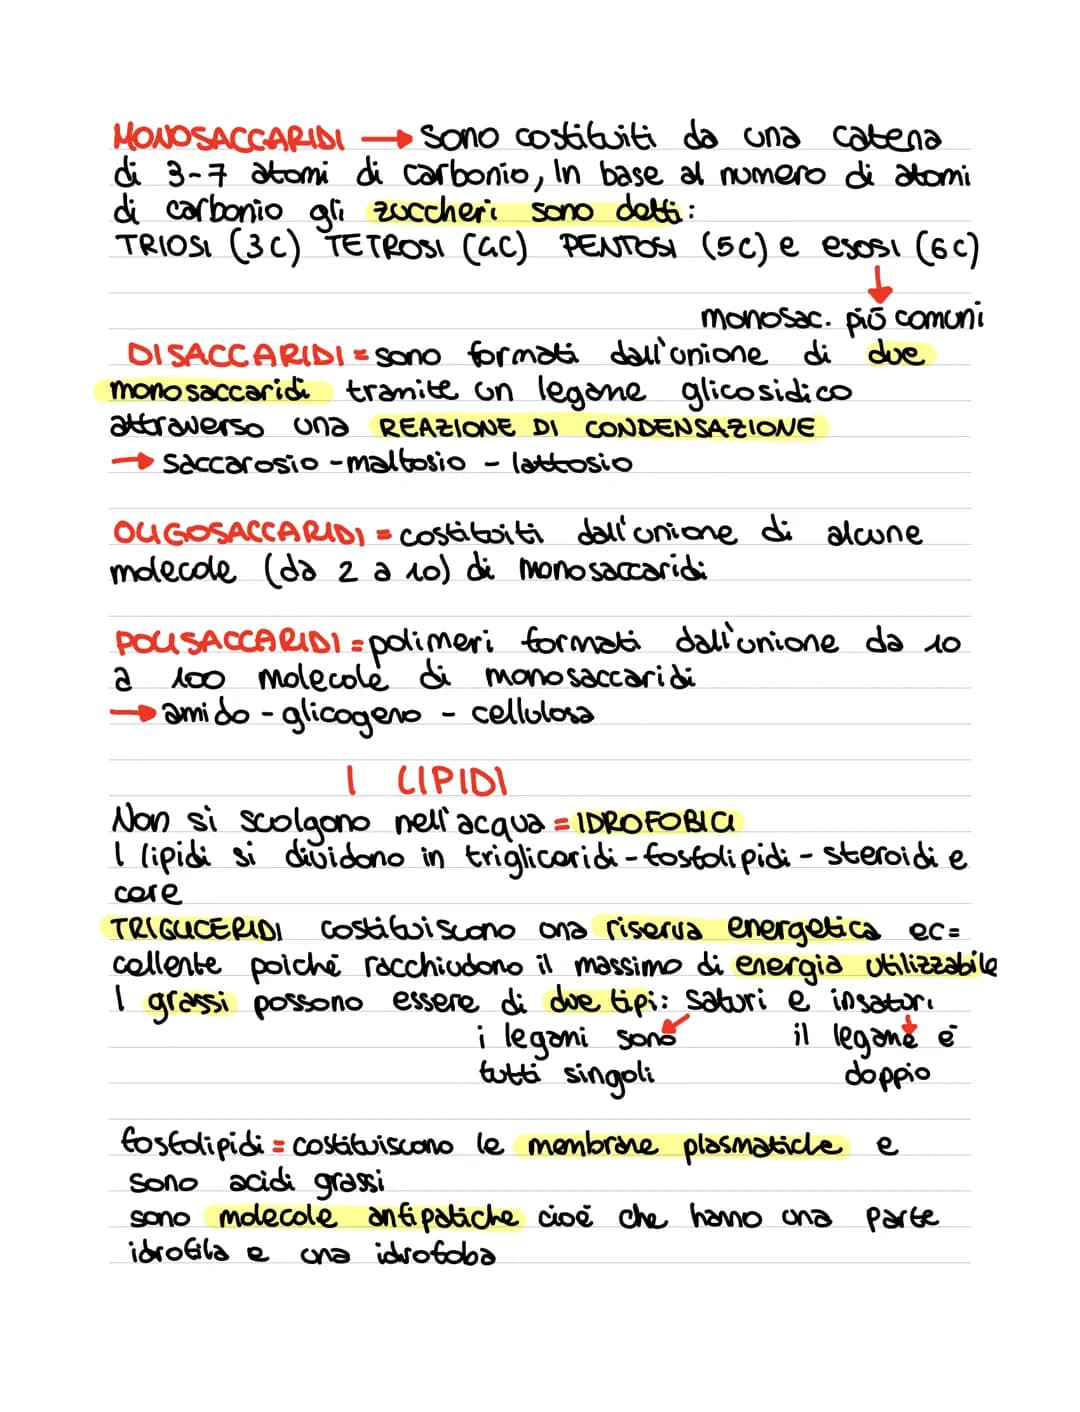 MONOSACCARIDI → sono costituiti da una catena
di 3-7 atomi di carbonio, In base al numero di atomi
di carbonio gli zuccheri sono detti:
TRIOSI (3C) TETROSI (4C) PENTOSI (5C) e esosi (6C)
↓
monosac. più comuni
DISACCARIDI = sono formati dall'unione di due
monosaccaridi tramite un legame glicosidico
attraverso una REAZIONE DI CONDENSAZIONE
→ saccarosio - maltosio - lattosio
OLIGOSACCARIDI = costituiti dall'unione di alcune
molecole (da 2 a 10) di monosaccaridi
POLISACCARIDI = polimeri formati dall'unione da 10
a 100 molecole di monosaccaridi
→ amido - glicogeno - cellulosa
I LIPIDI
Non si sciolgono nell'acqua = IDROFOBICI
I lipidi si dividono in trigliceridi - fosfolipidi - steroidi e
cere
TRIGLICERIDI costituiscono una riserva energetica ec=
cellente poiché racchiudono il massimo di energia utilizzabile
I grassi possono essere di due tipi: saturi e insaturi
i legami sono il legame è
tutti singoli doppio
fosfolipidi = costituiscono le membrane plasmatiche e
sono acidi grassi
sono molecole anfipatiche cioè che hanno una parte
idrofila e una idrofoba